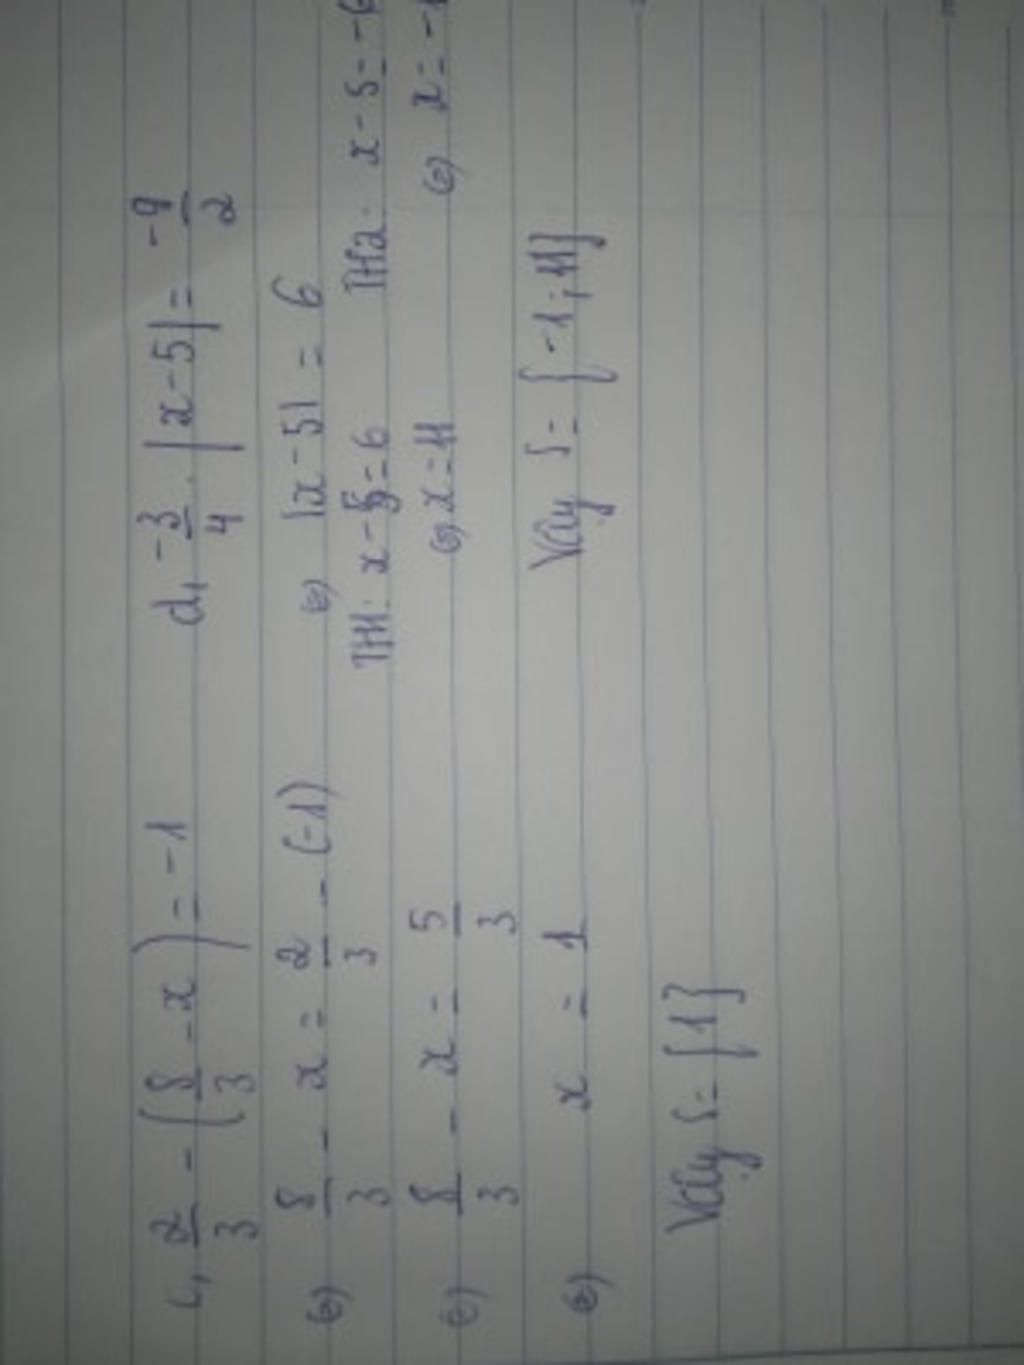 c, 2/3 - (8/3 - x) = -1
(=) 8/3 - x = 2/3 - (-1)
(=) 8/3 - x = 5/3
(=) x = 1
Vậy S = {1}
d, -3/4 . |x-5| = -9/2
(=) |x-5| = 6
TH1: x-5=6 TH2: x-5=-6
(=) x=11 (=) x=-1
Vậy S = {-1; 11}